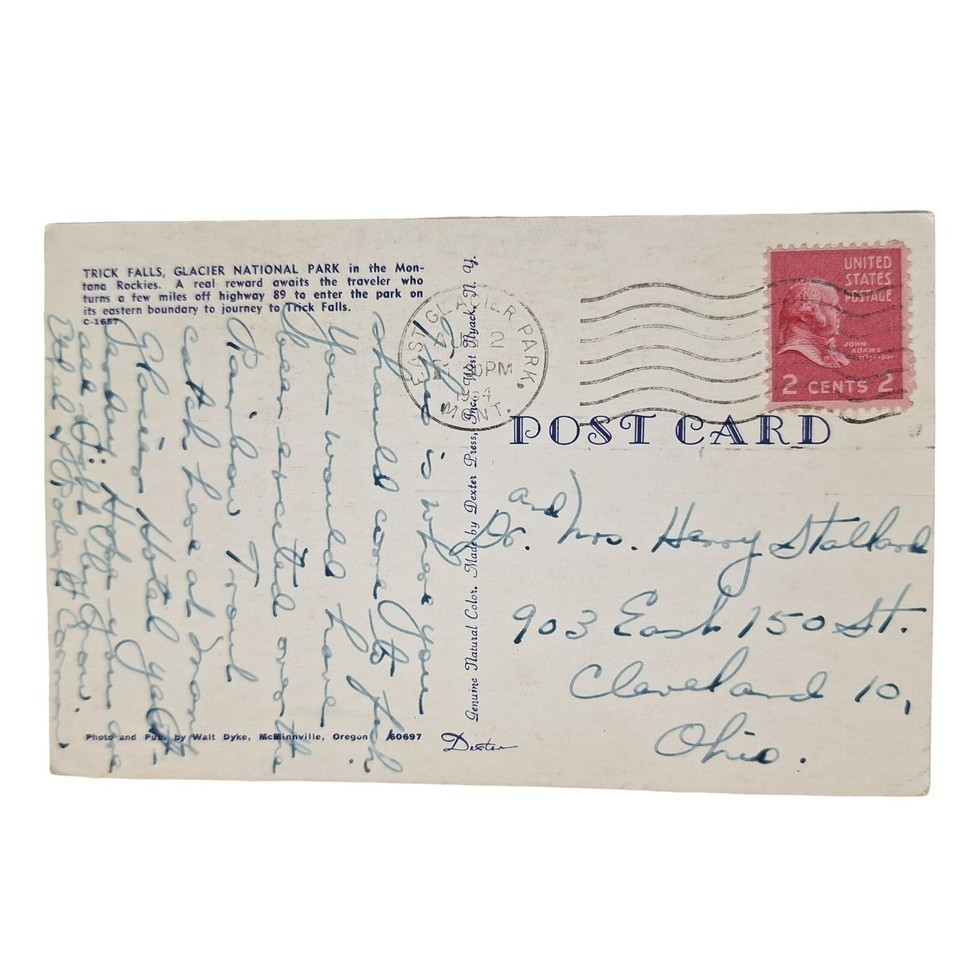 TRICK FALLS, GLACIER NATIONAL PARK in the Mon-
tana Rockies. A real reward awaits the traveler who
turns a few miles off highway 89 to enter the park on
its eastern boundary to journey to Trick Falls.
C-1657
This is where you
should come to fish.
You would have
been excited over the
Rainbow Trout
catch here at
Glacier Hotel
Hope you are
all
Photo and Pub. by Walt Dyke, McMinnville, Oregon 60697
Genuine Natural Color. Made by Dexter Press, Inc., West Nyack, N. Y.
Dexter
EAST GLACIER PARK,
2
PM
MONT.
UNITED
STATES
POSTAGE
JOHN
ADAMS
2 CENTS 2
POST CARD
and
Dr. Mrs. Henry Stallard
903 East 150 St.
Cleveland 10,
Ohio.